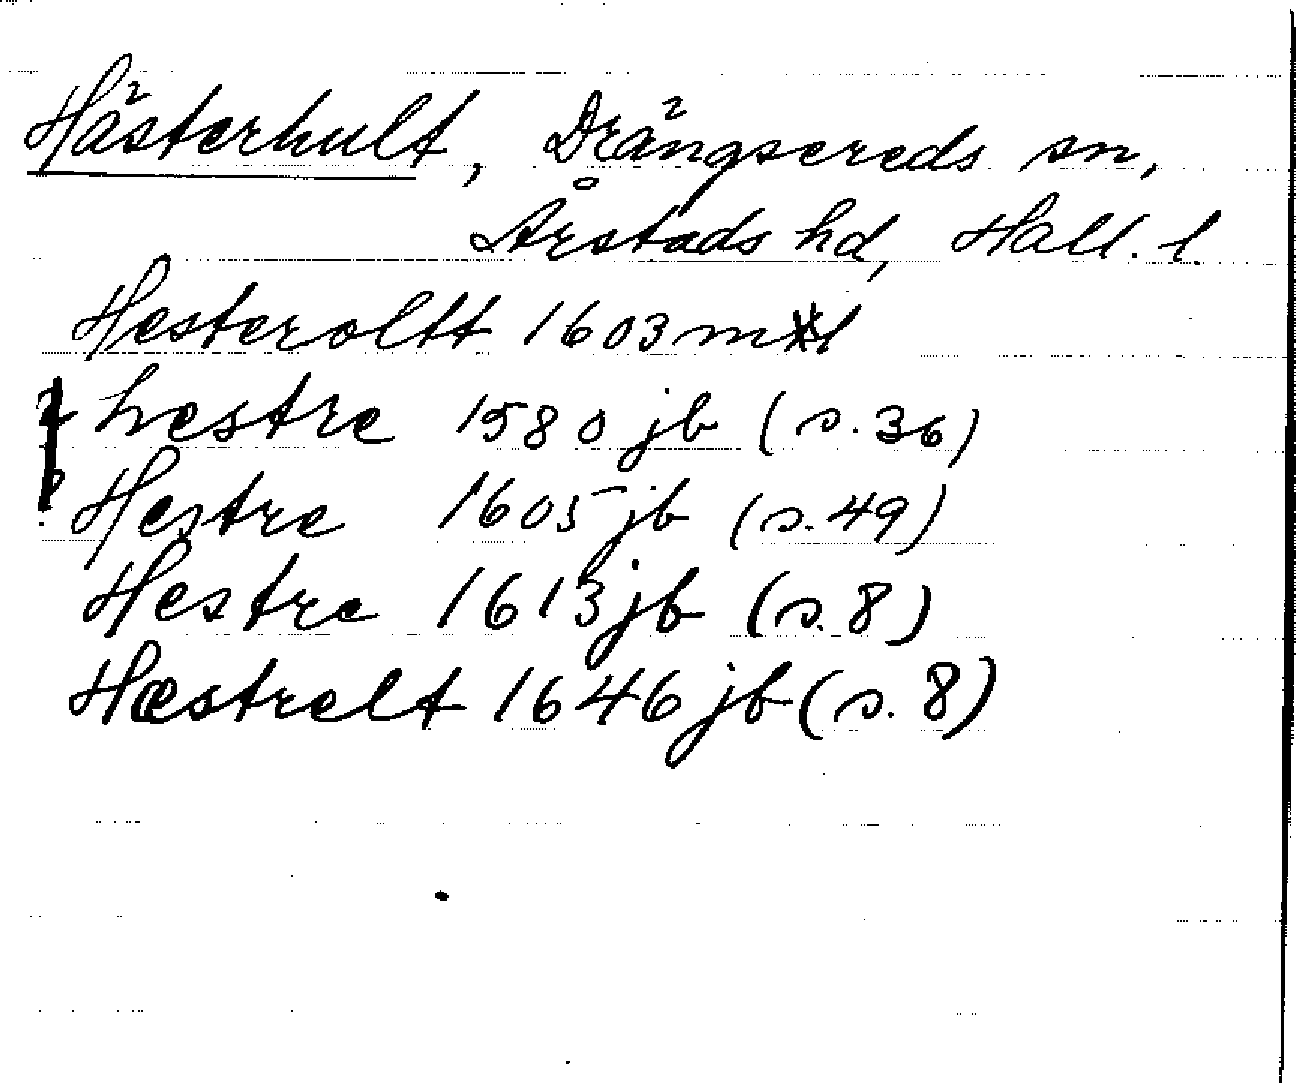 Hästerhult, Drängsereds sn,
Årstads hd, Hall. l.
Hesteroltt 1603 mtl
hestre 1580 jb (s. 36)
Hestre 1605 jb (s. 49)
Hestre 1613 jb (s. 8)
Hæstrelt 1646 jb (s. 8)